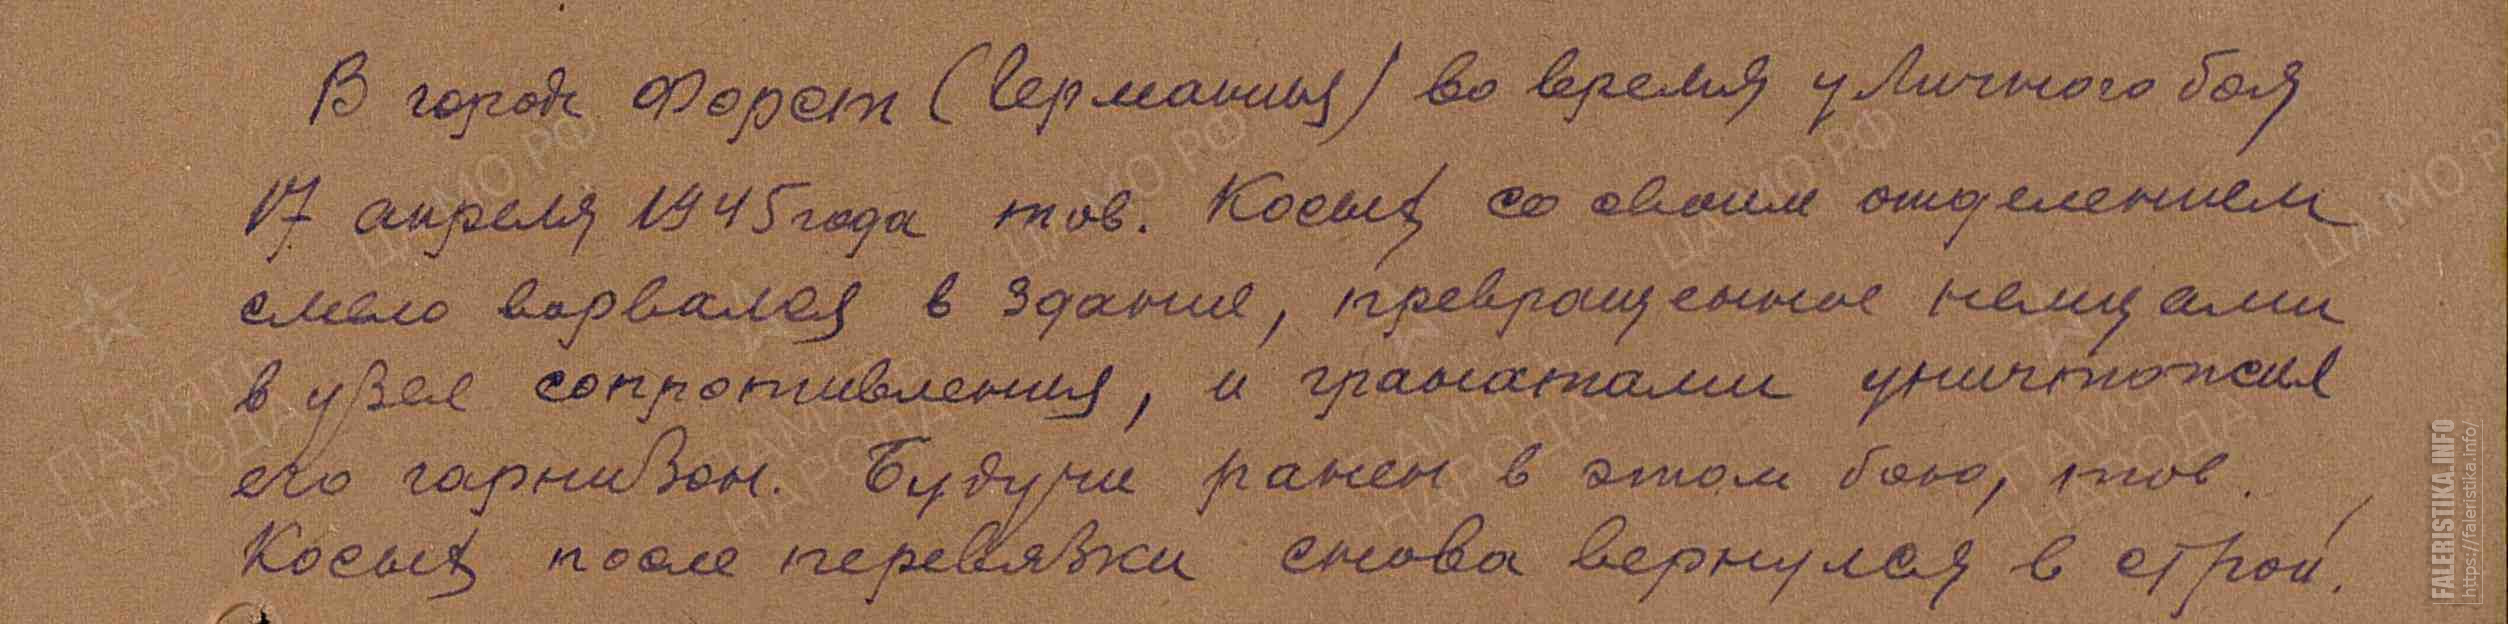 В городе Форст (Германия) во время уличного боя
17 апреля 1945 года тов. Косых со своим отделением
смело ворвался в здание, превращенное немцами
в узел сопротивления, и гранатами уничтожил
его гарнизон. Будучи ранен в этом бою, тов.
Косых после перевязки снова вернулся в строй.
ПАМЯТЬ НАРОДА
ЦА МО РФ
FALERISTIKA.INFO
https://faleristika.info/